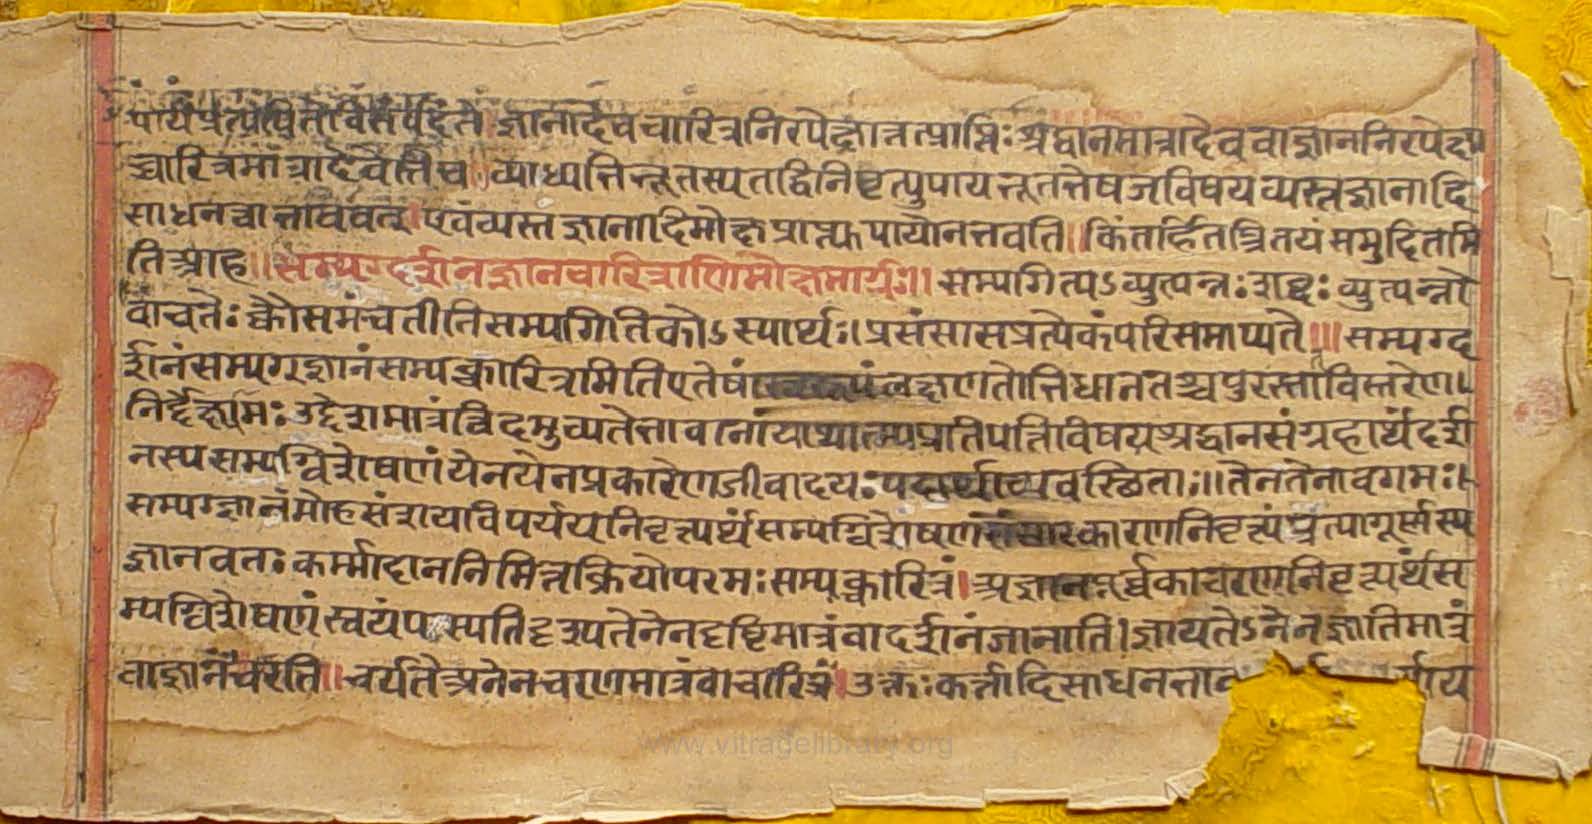 ज्ञानादेव चारित्रनिरपेक्षात्तत्प्राप्तिः श्रद्धानमात्रादेव वा ज्ञाननिरपेक्षा
च्चारित्रमात्रादेवेति च॥ व्याध्यभिभूतस्य तद्विनिवृत्त्युपायभूतभेषजविषयव्यस्तज्ञानादि
साधनत्वाभाववत्। एवं व्यस्तज्ञानादिमोक्षप्राप्त्युपायो न भवति॥ किं तर्हि तत्त्रितयं समुदितमि
ति आह॥ सम्यग्दर्शनज्ञानचारित्राणि मोक्षमार्गः॥ सम्यगित्यऽव्युत्पन्नः शब्दः व्युत्पन्नो
वा चतेः क्वौ समंचतीति सम्यगिति कोऽस्यार्थः। प्रसंसा स प्रत्येकं परिसमाप्यते॥ सम्यग्द
र्शनं सम्यग्ज्ञानं सम्यक्चारित्रमिति एतेषां लक्षणतो विधानतश्च पुरस्ताविस्तरेण।
निर्देक्ष्यामः उद्देशमात्रं त्विदमुच्यते भावानां याथात्म्यप्रतिपत्तिविषयश्रद्धानसंग्रहार्थं दर्श
नस्य सम्यग्विशेषणं येन येन प्रकारेण जीवादयः पदार्था व्यवस्थिताः॥ तेन तेनावगमः।
सम्यग्ज्ञानं मोहसंशयविपर्ययनिवृत्त्यर्थं सम्यग्विशेषणं संसारकारणनिवृत्त्यं प्रत्यागूर्णस्य
ज्ञानवतः कर्म्मादाननिमित्तक्रियोपरमः सम्यक्चारित्रं। अज्ञानपूर्व्वकाचरणनिवृत्त्यर्थं स
म्यग्विशेषणं स्वयं पश्यति दृश्यतेनेन दृष्टिमात्रं वा दर्शनं जानाति। ज्ञायतेऽनेन ज्ञातिमात्रं
वा ज्ञानं चरति॥ चर्यते अनेन चरणमात्रं वा चारित्रं॥ उक्तः कर्त्तादिसाधनभाव